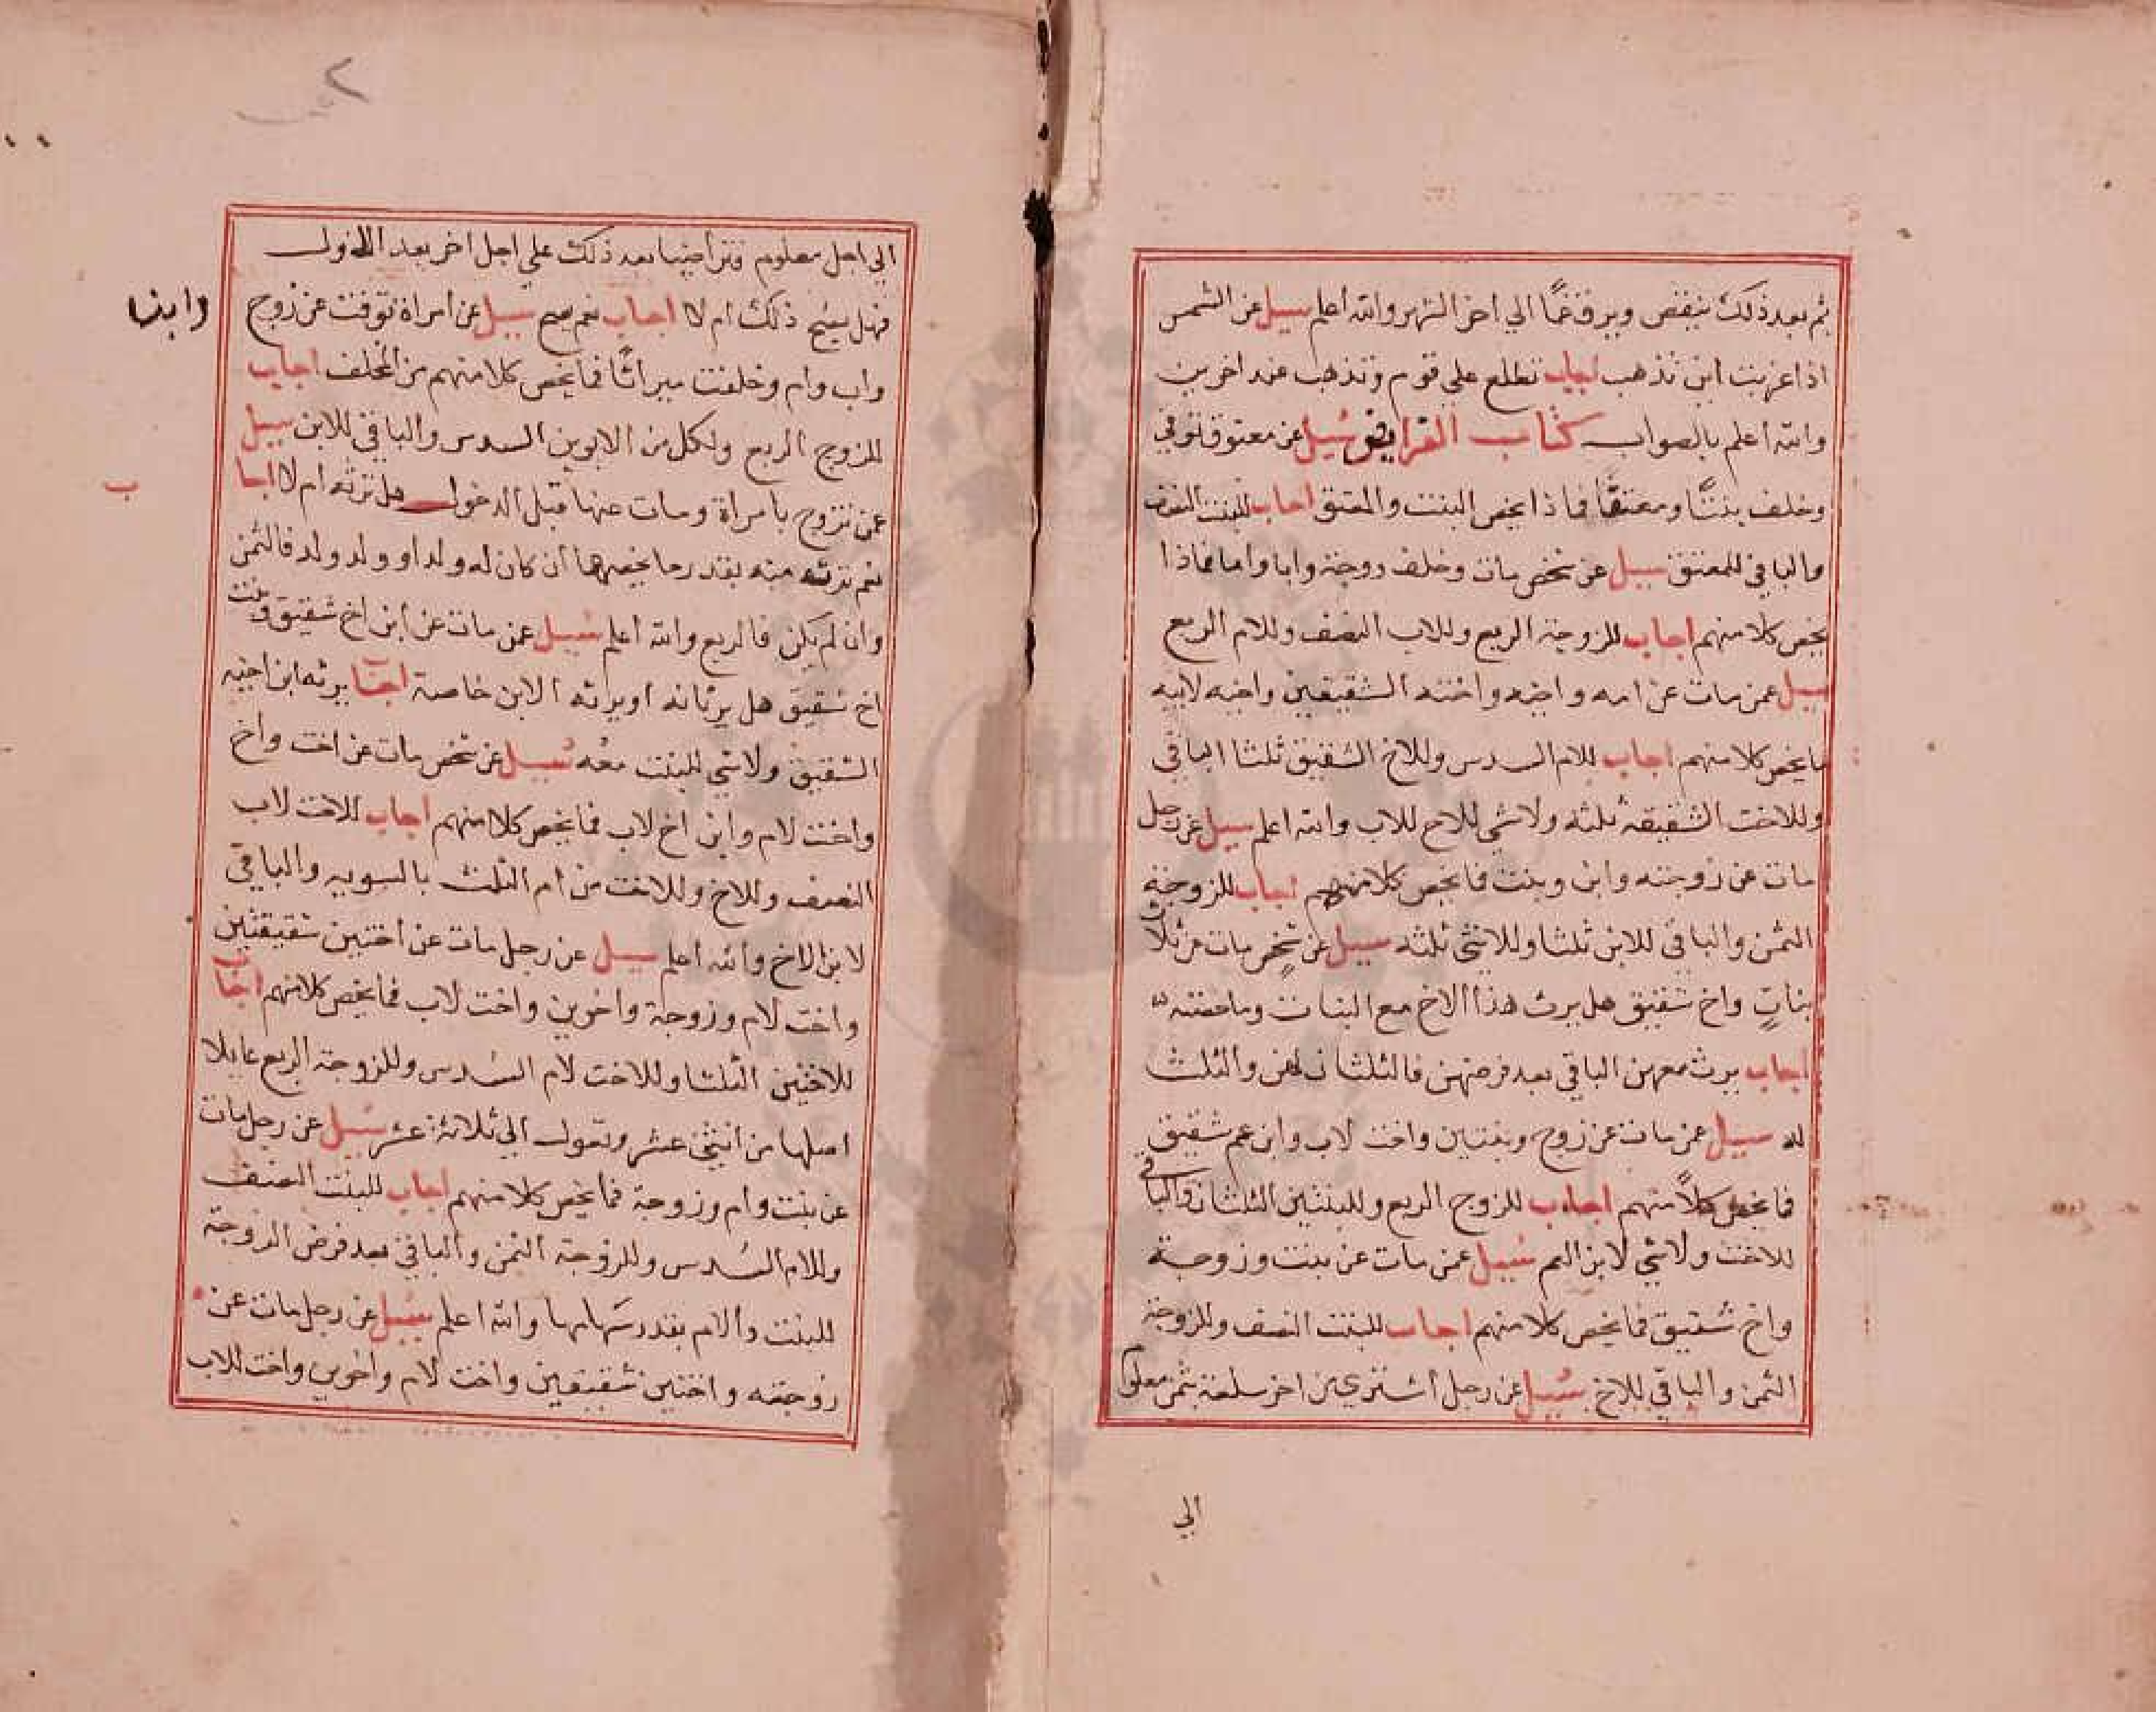 ثم بعد ذلك ينقص ويرق غما الي اخر الشهر والله اعلم سيل عن الشمس
اذا غربت اين تذهب اجاب تطلع علي قوم وتذهب عند اخرين
والله اعلم بالصواب كتاب الفرايض سيل عن معتوق توفي
وخلف بنتا ومعتقا فماذا يخص البنت والمعتق اجاب للبنت النصف
والباقي للمعتق سيل عن شخص مات وخلف زوجة وابا واما فماذا
يخص كلا منهم اجاب للزوجة الربع وللاب النصف وللام الربع
سيل عمن مات عن امه واخيه واخته الشقيقين واخيه لابيه
ما يخص كلا منهم اجاب للام السدس وللاخ الشقيق ثلثا الباقي
وللاخت الشقيقه ثلثه ولا شي للاخ للاب والله اعلم سيل عن رجل
مات عن زوجته وابن وبنت فما يخص كلا منهم اجاب للزوجة
الثمن والباقي للابن ثلثا وللانثي ثلثه سيل عن شخص مات عن ثلاث
بنات واخ شقيق هل يرث هذا الاخ مع البنات وما حصته
اجاب يرث معهن الباقي بعد فرضهن فالثلثان لهن والثلث
له سيل عن مات عن زوج وبنتين واخت لاب وابن عم شقيق
فما يخص كلا منهم اجاب للزوج الربع وللبنتين الثلثان والباقي
للاخت ولا شي لابن العم سيل عمن مات عن بنت وزوجة
واخ شقيق فما يخص كلا منهم اجاب للبنت النصف وللزوجة
الثمن والباقي للاخ سيل عن رجل اشتري من اخر سلعة بثمن معلوم
الي
الي اجل معلوم وتراضيا بعد ذلك علي اجل اخر بعد الاول
فهل يصح ذلك ام لا اجاب نعم يصح سيل عن امراة توفت عن زوج
وابنا
واب وام وخلفت ميراثا فما يخص كلا منهم من المخلف اجاب
للزوج الربع ولكل من الابوين السدس والباقي للابن سيل
عمن تزوج بامراة ومات عنها قبل الدخول هل ترثه ام لا اجا
ب
نعم ترثه منه بقدر ما يخصها ان كان له ولد او ولد ولد فالثمن
وان لم يكن فالربع والله اعلم سيل عمن مات عن ابن اخ شقيق وبنت
اخ شقيق هل يرثانه او يرثه الابن خاصة اجاب يرثه ابن اخيه
الشقيق ولا شي للبنت معه سيل عن شخص مات عن اخت واخ
واخت لام وابن اخ لاب فما يخص كلا منهم اجاب للاخت لاب
النصف وللاخ وللاخت من ام الثلث بالسويه والباقي
لابن الاخ والله اعلم سيل عن رجل مات عن اختين شقيقتين
واخت لام وزوجة واخوين واخت لاب فما يخص كلا منهم اجاب
للاختين الثلثا وللاخت لام السدس وللزوجة الربع عايلا
اصلها من اثنيتي عشر وتعول الي ثلاثة عشر سيل عن رجل مات
عن بنت وام وزوجة فما يخص كلا منهم اجاب للبنت النصف
وللام السدس وللزوجة الثمن والباقي بعد فرض الزوجة
للبنت والام بقدر سهامها والله اعلم سيل عن رجل مات عن
زوجته واختين شقيقين واخت لام واخوين واخت للاب